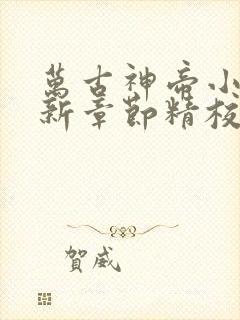 萬古神帝小
新章節精校
賀威